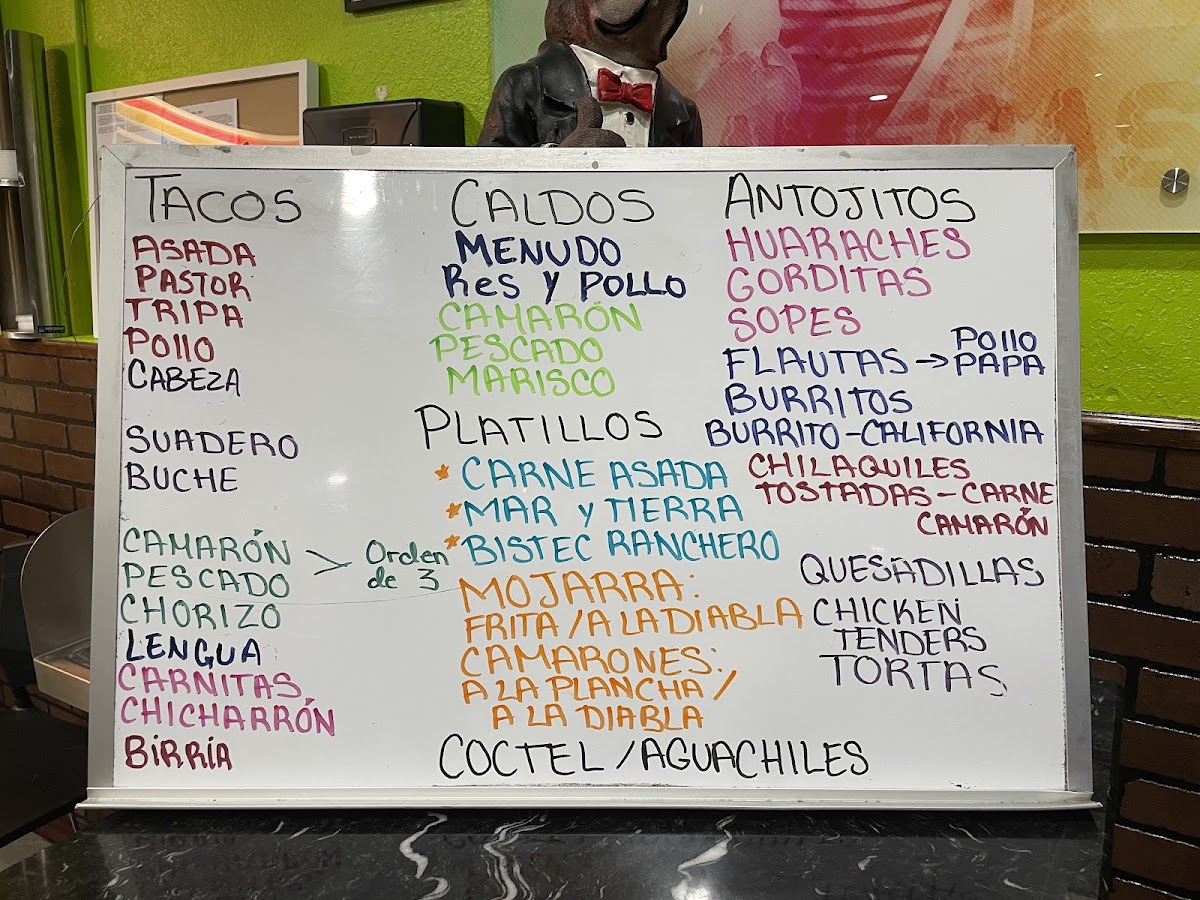 TACOS
ASADA
PASTOR
TRIPA
Pollo
CABEZA
SUADERO
BUCHE
CAMARÓN
PESCADO
> Orden
de 3
CHORIZO
LENGUA
CARNITAS
CHICHARRÓN
BiRRÍA
CALDOS
MENUDO
Res y POLLO
CAMARÓN
PESCADO
MARISCO
PLATILLOS
* CARNE ASADA
* MAR y TIERRA
* BISTEC RANCHERO
MOJARRA:
FRITA / A LA DIABLA
CAMARONES:
A LA PLANCHA /
A LA DIABLA
COCTEL / AGUACHILES
ANTOJITOS
HUARACHES
GORDITAS
SOPES
FLAUTAS → Pollo
PAPA
BURRITOS
BURRITO - CALIFORNIA
CHILAQUILES
TOSTADAS - CARNE
CAMARÓN
QUESADILLAS
CHICKEN
TENDERS
TORTAS